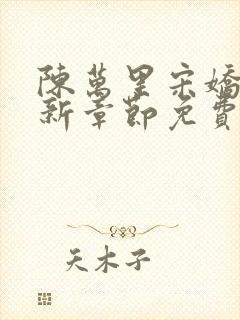 陳萬里宋嬌
新章節免費
天木子